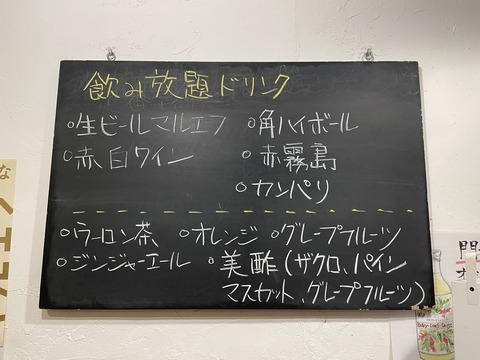 飲み放題ドリンク
○生ビールマルエフ ○角ハイボール
○赤、白ワイン ○赤霧島
○カンパリ
○ウーロン茶 ○オレンジ ○グレープフルーツ
○ジンジャーエール ○美酢(ザクロ、パイン
マスカット、グレープフルーツ)